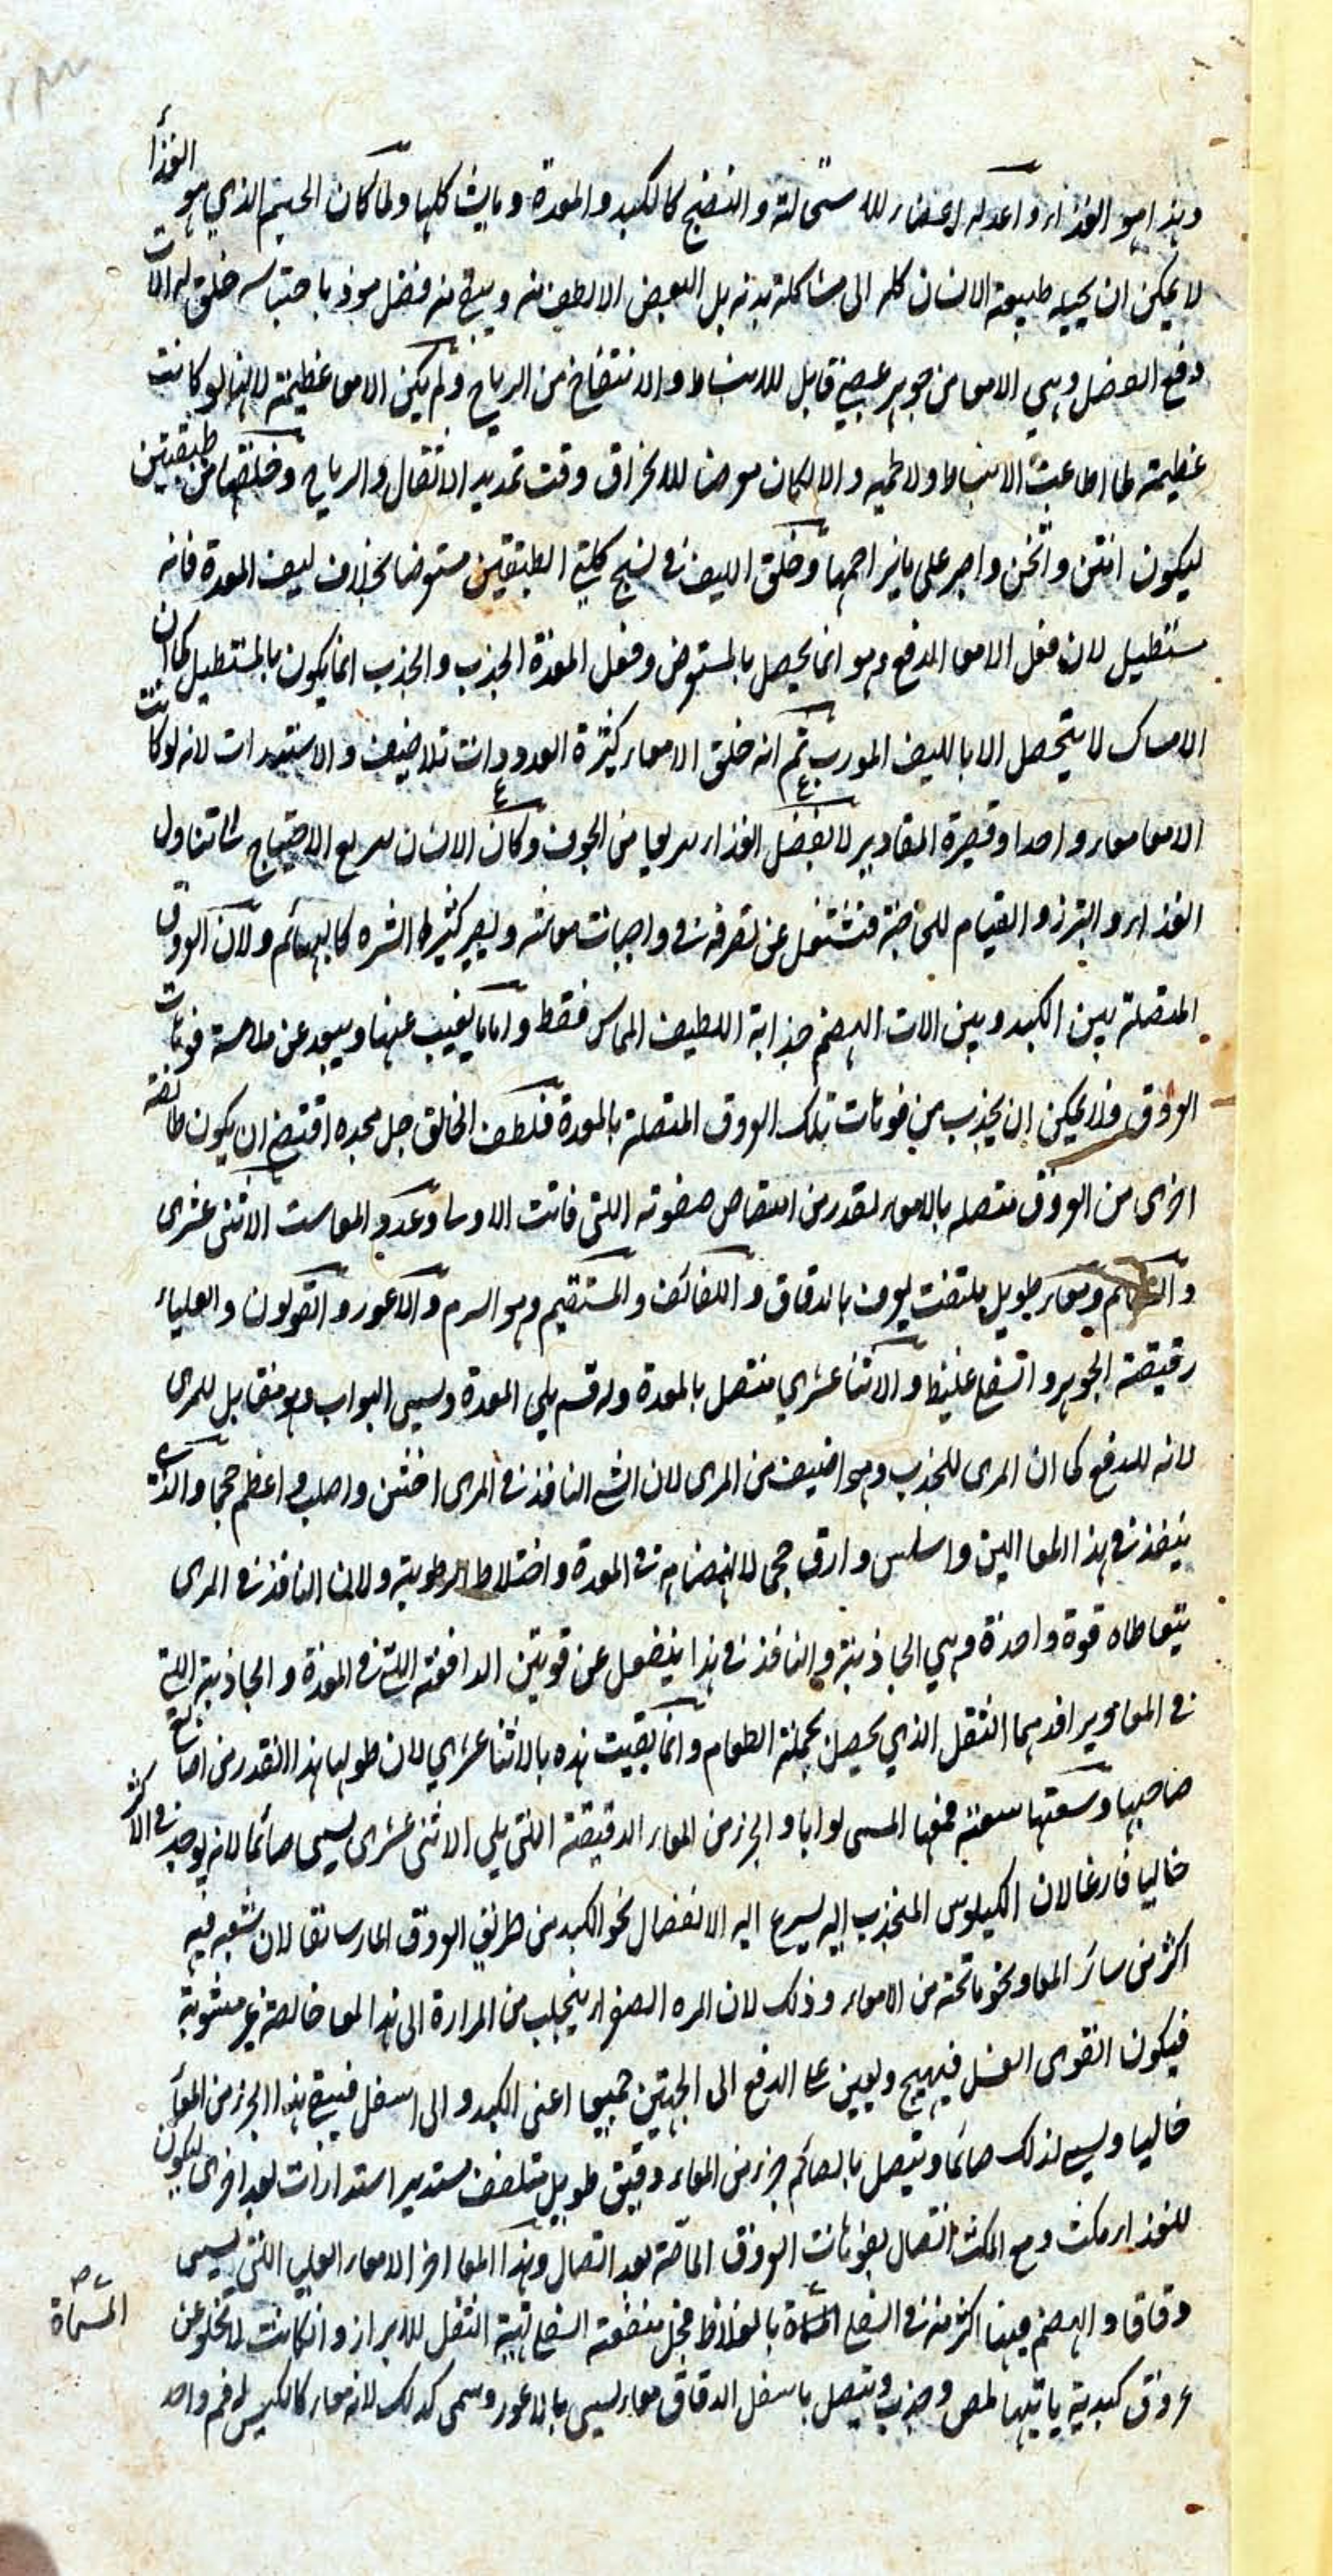 وهذا هو الغذاء واعد له اعضاء للاستحالة والنضج كالكبد والمعدة وماريث كلها ولما كان الجسم الذي هو الغذأ
لا يمكن ان يحيله طبيعة الانسان كله الى مشاكلة بدنه بل البعض الالطف منه ويبقى منه فضل موذ باحتباسه خلق له الات
دفع الفضل وهي الامعا من جوهر عصبي قابل للانبساط والانتفاخ من الرياح ولم يكن الامعا عظيمة لانها لو كانت
عظيمة لما اطاعت الانبساط ولا لحمية والا لكان معرضا للانخراق وقت تمديد الاثفال والرياح وخلقها من طبقتين
ليكون امتن واثخن واصبر على ما يزاحمها وخلق الليف في نسج كلتي الطبقتين مستعرضا بخلاف ليف المعدة فانه
مستطيل لان فعل الامعا الدفع وهو انما يحصل بالمستعرض وفعل المعدة الجذب والجذب انما يكون بالمستطيل كما ان
الامساك لا يتحصل الا بالليف المورب ثم انه خلق الامعاء كثيرة العدد وذات تلافيف والاستدارات لانه لو كانت
الامعا معاء واحدا وقصيرة المقادير لانفصل الغذاء سريعا من الجوف وكان الانسان سريع الاحتياج الى تناول
الغذاء والتبرز والقيام للحاجة فتشتغل عن تصرفه في واجبات معاشه ويصير كثير الشره كالبهائم ولان العروق
المتصلة بين الكبد وبين الات الهضم جذابة اللطيف المماس فقط واما ما يغيب عنها ويبعد عن ملامسة فوهات
العروق فلا يمكن ان يجذب من فوهات تلك العروق المتصلة بالمعدة فلطف الخالق جل مجده اقتضى ان يكون طائفة
اخرى من العروق متصلة بالامعاء لتقدر من امتصاص صفوته اللتي فاتت الاولى وعدد المعا ست الاثنى عشرى
والصائم ومعاء طويل ملتفت يعرف بالدقاق واللفائف والمستقيم وهو السرم والاعور والقولون والعلياء
رقيقة الجوهر والسفلى غليظ والاثنا عشري متصل بالمعدة وله فم يلي المعدة ويسمى البواب وهو مقابل للمرى
لانه للدفع كما ان المرى للجذب وهو اضيق من المرى لان الشي النافذ في المرى اخشن واصلب واعظم حجما والذي
ينفذ في هذا المعا الين واسلس وارق حجم لانهضامه في المعدة واختلاط الرطوبة ولان النافذ في المرى
يتعاطاه قوة واحدة وهي الجاذبة والنافذ في هذا ينفعل عن قوتين الدافعة التي في المعدة والجاذبة التي
في المعا ويرافدهما الثقل الذي يحصل بجملة الطعام وانما لقبت هذه بالاثنا عشري لان طولها هذا القدر من اصابع
صاحبها وسعتها سعة فمها المسمى بوابا والجزء من المعاء الدقيقة اللتي يلي الاثنى عشرى يسمى صائما لانه يوجد في الاكثر
خاليا فارغا لان الكيلوس المنجذب اليه يسرع اليه الانفصال نحو الكبد من طريق العروق الماساريقا لان شعبه فيه
اكثر من سائر المعا ونحو ما تحته من الامعاء وذلك لان المره الصفراء ينجلب من المرارة الى هذا المعا خالصة غير مشوبة
فيكون القوى الغسل فيهيج ويعين على الدفع الى الجهتين جميعا اعنى الكبد والى اسفل فيبقى هذا الجزء من المعأ
خاليا ويسمى لذلك صائما ويتصل بالصائم جزء من المعاء دقيق طويل متلفف مستدير استدارات بعد اخرى ليكون
للغذاء مكث ومع المكث اتصال بفوهات العروق الماصة بعد اتصال وهذا المعا اخر الامعاء العليا اللتي يسمى
دقاقا والهضم فيها اكثر منه في السفلى المسماة بالغلاظ فجل منفعة السفلى تهيئة الثفل للابراز وان كانت لا تخلو عن
عروق كبدية ياتيها لمص وجذب ويتصل باسفل الدقاق معاء يسمى بالاعور وسمى كذلك لانه معاء كالكيس له فم واحد
المسماة صح